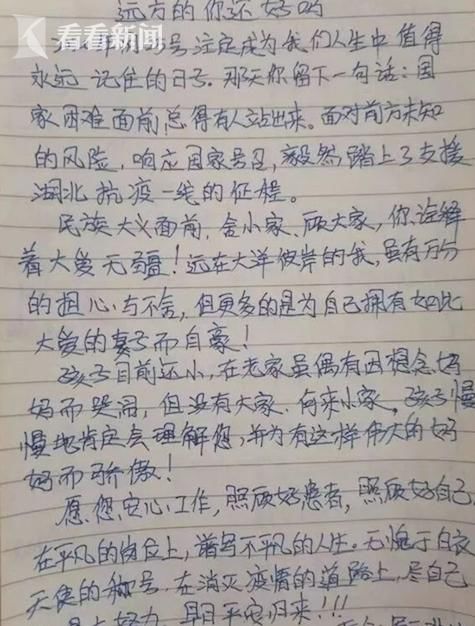 远方的你还好吗
看看新闻
号注定成为我们人生中值得
永远记住的日子。那天你留下一句话：国
家困难面前，总得有人站出来。面对前方未知
的风险，响应国家号召，毅然踏上了支援
湖北抗疫一线的征程。
民族大义面前，舍小家、顾大家，你诠释
着大爱无疆！远在大洋彼岸的我，虽有万分
的担心与不舍，但更多的是为自己拥有如此
大爱的妻子而自豪！
孩子目前还小，在老家虽偶有因想念妈
妈而哭闹，但没有大家、何来小家，孩子慢
慢地肯定会理解您，并为有这样伟大的妈
妈而骄傲！
愿您安心工作，照顾好患者，照顾好自己
在平凡的岗位上，谱写不平凡的人生。无愧于白衣
天使的称号，在消灭疫情的道路上，尽自己
最大努力，早日平安归来！！！